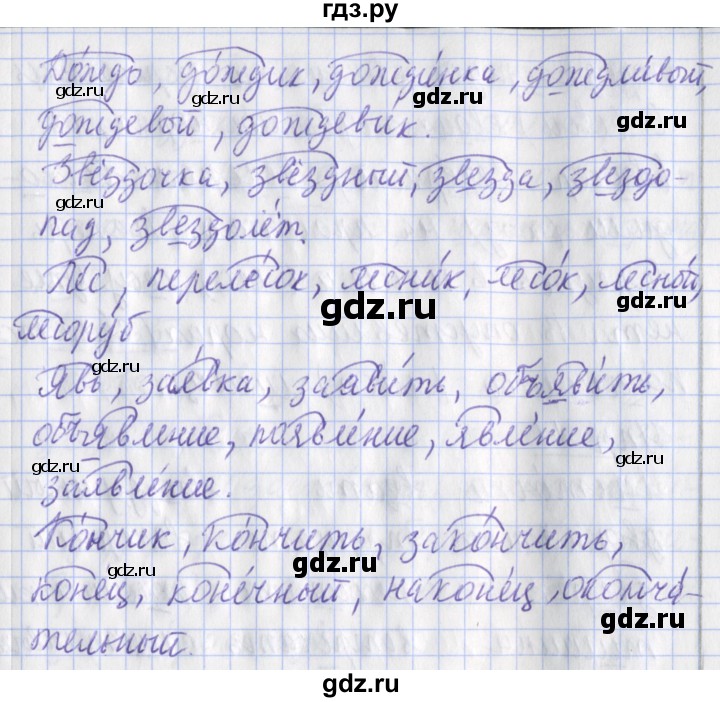 гдз.ру
Дождь, дождик, дождинка, дождливый,
gdz.ru gdz.ru gdz.ru
дождевой, дождевик.
gdz.ru
Звёздочка, звёздный, звезда, звездо-
gdz.ru
пад, звездолёт.
Лес, перелесок, лесник, лесок, лесной,
gdz.ru gdz.ru
лесоруб
gdz.ru gdz.ru
Явь, заявка, заявить, объявить,
объявление, появление, явление,
gdz.ru gdz.ru
заявление.
Кончик, кончить, закончить,
gdz.ru gdz.ru
конец, конечный, наконец, оконча-
gdz.ru
тельный.
gdz.ru